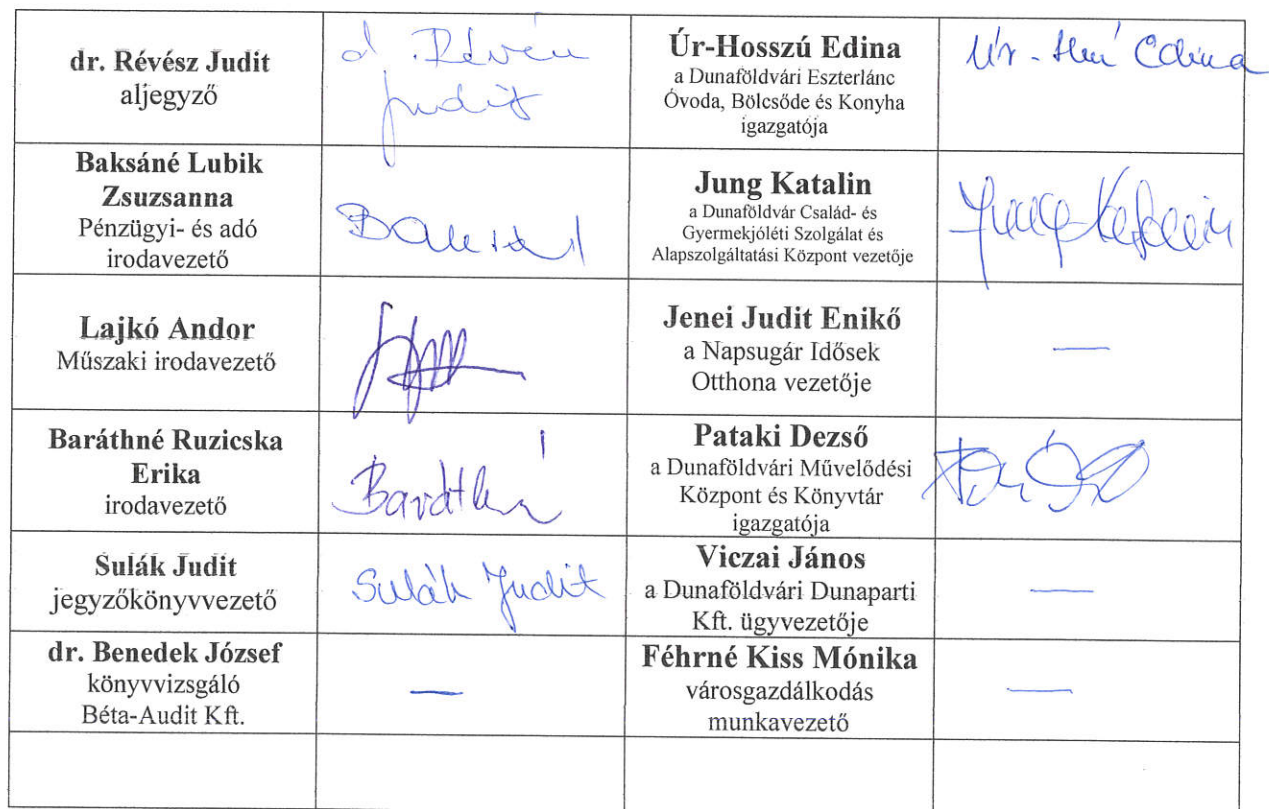 dr. Révész Judit
aljegyző
d. Révész
Judit
Úr-Hosszú Edina
a Dunaföldvári Eszterlánc
Óvoda, Bölcsőde és Konyha
igazgatója
Úr-Hosszú Edina
Baksáné Lubik
Zsuzsanna
Pénzügyi- és adó
irodavezető
Jung Katalin
a Dunaföldvár Család- és
Gyermekjóléti Szolgálat és
Alapszolgáltatási Központ vezetője
Jung Katalin
Lajkó Andor
Műszaki irodavezető
Jenei Judit Enikő
a Napsugár Idősek
Otthona vezetője
—
Baráthné Ruzicska
Erika
irodavezető
Baráthné
Pataki Dezső
a Dunaföldvári Művelődési
Központ és Könyvtár
igazgatója
Sulák Judit
jegyzőkönyvvezető
Sulák Judit
Viczai János
a Dunaföldvári Dunaparti
Kft. ügyvezetője
—
dr. Benedek József
könyvvizsgáló
Béta-Audit Kft.
—
Féhrné Kiss Mónika
városgazdálkodás
munkavezető
—